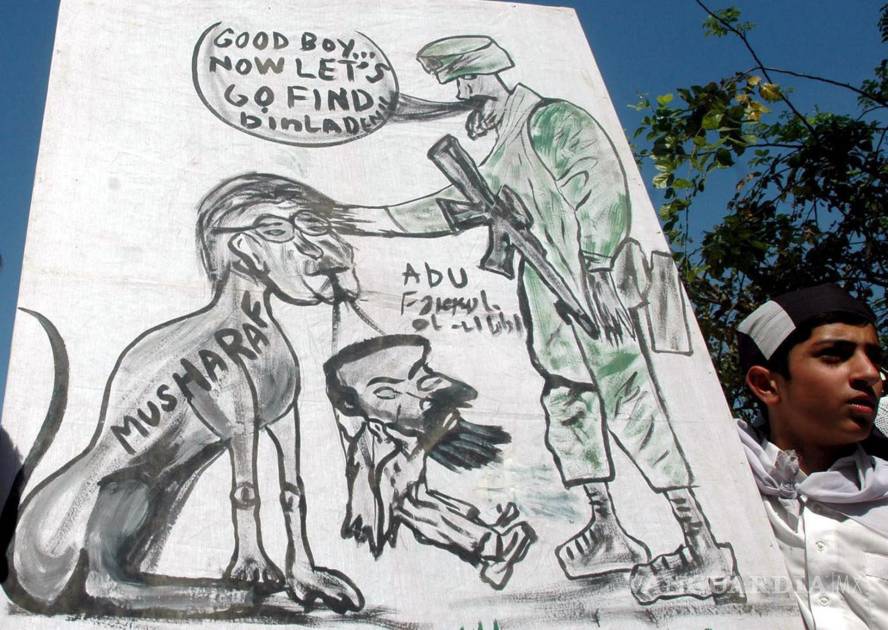 GOOD BOY...
NOW LET'S
GO FIND
binLADEN!
ABU
MUSHARAF
VANGUARDIA MX